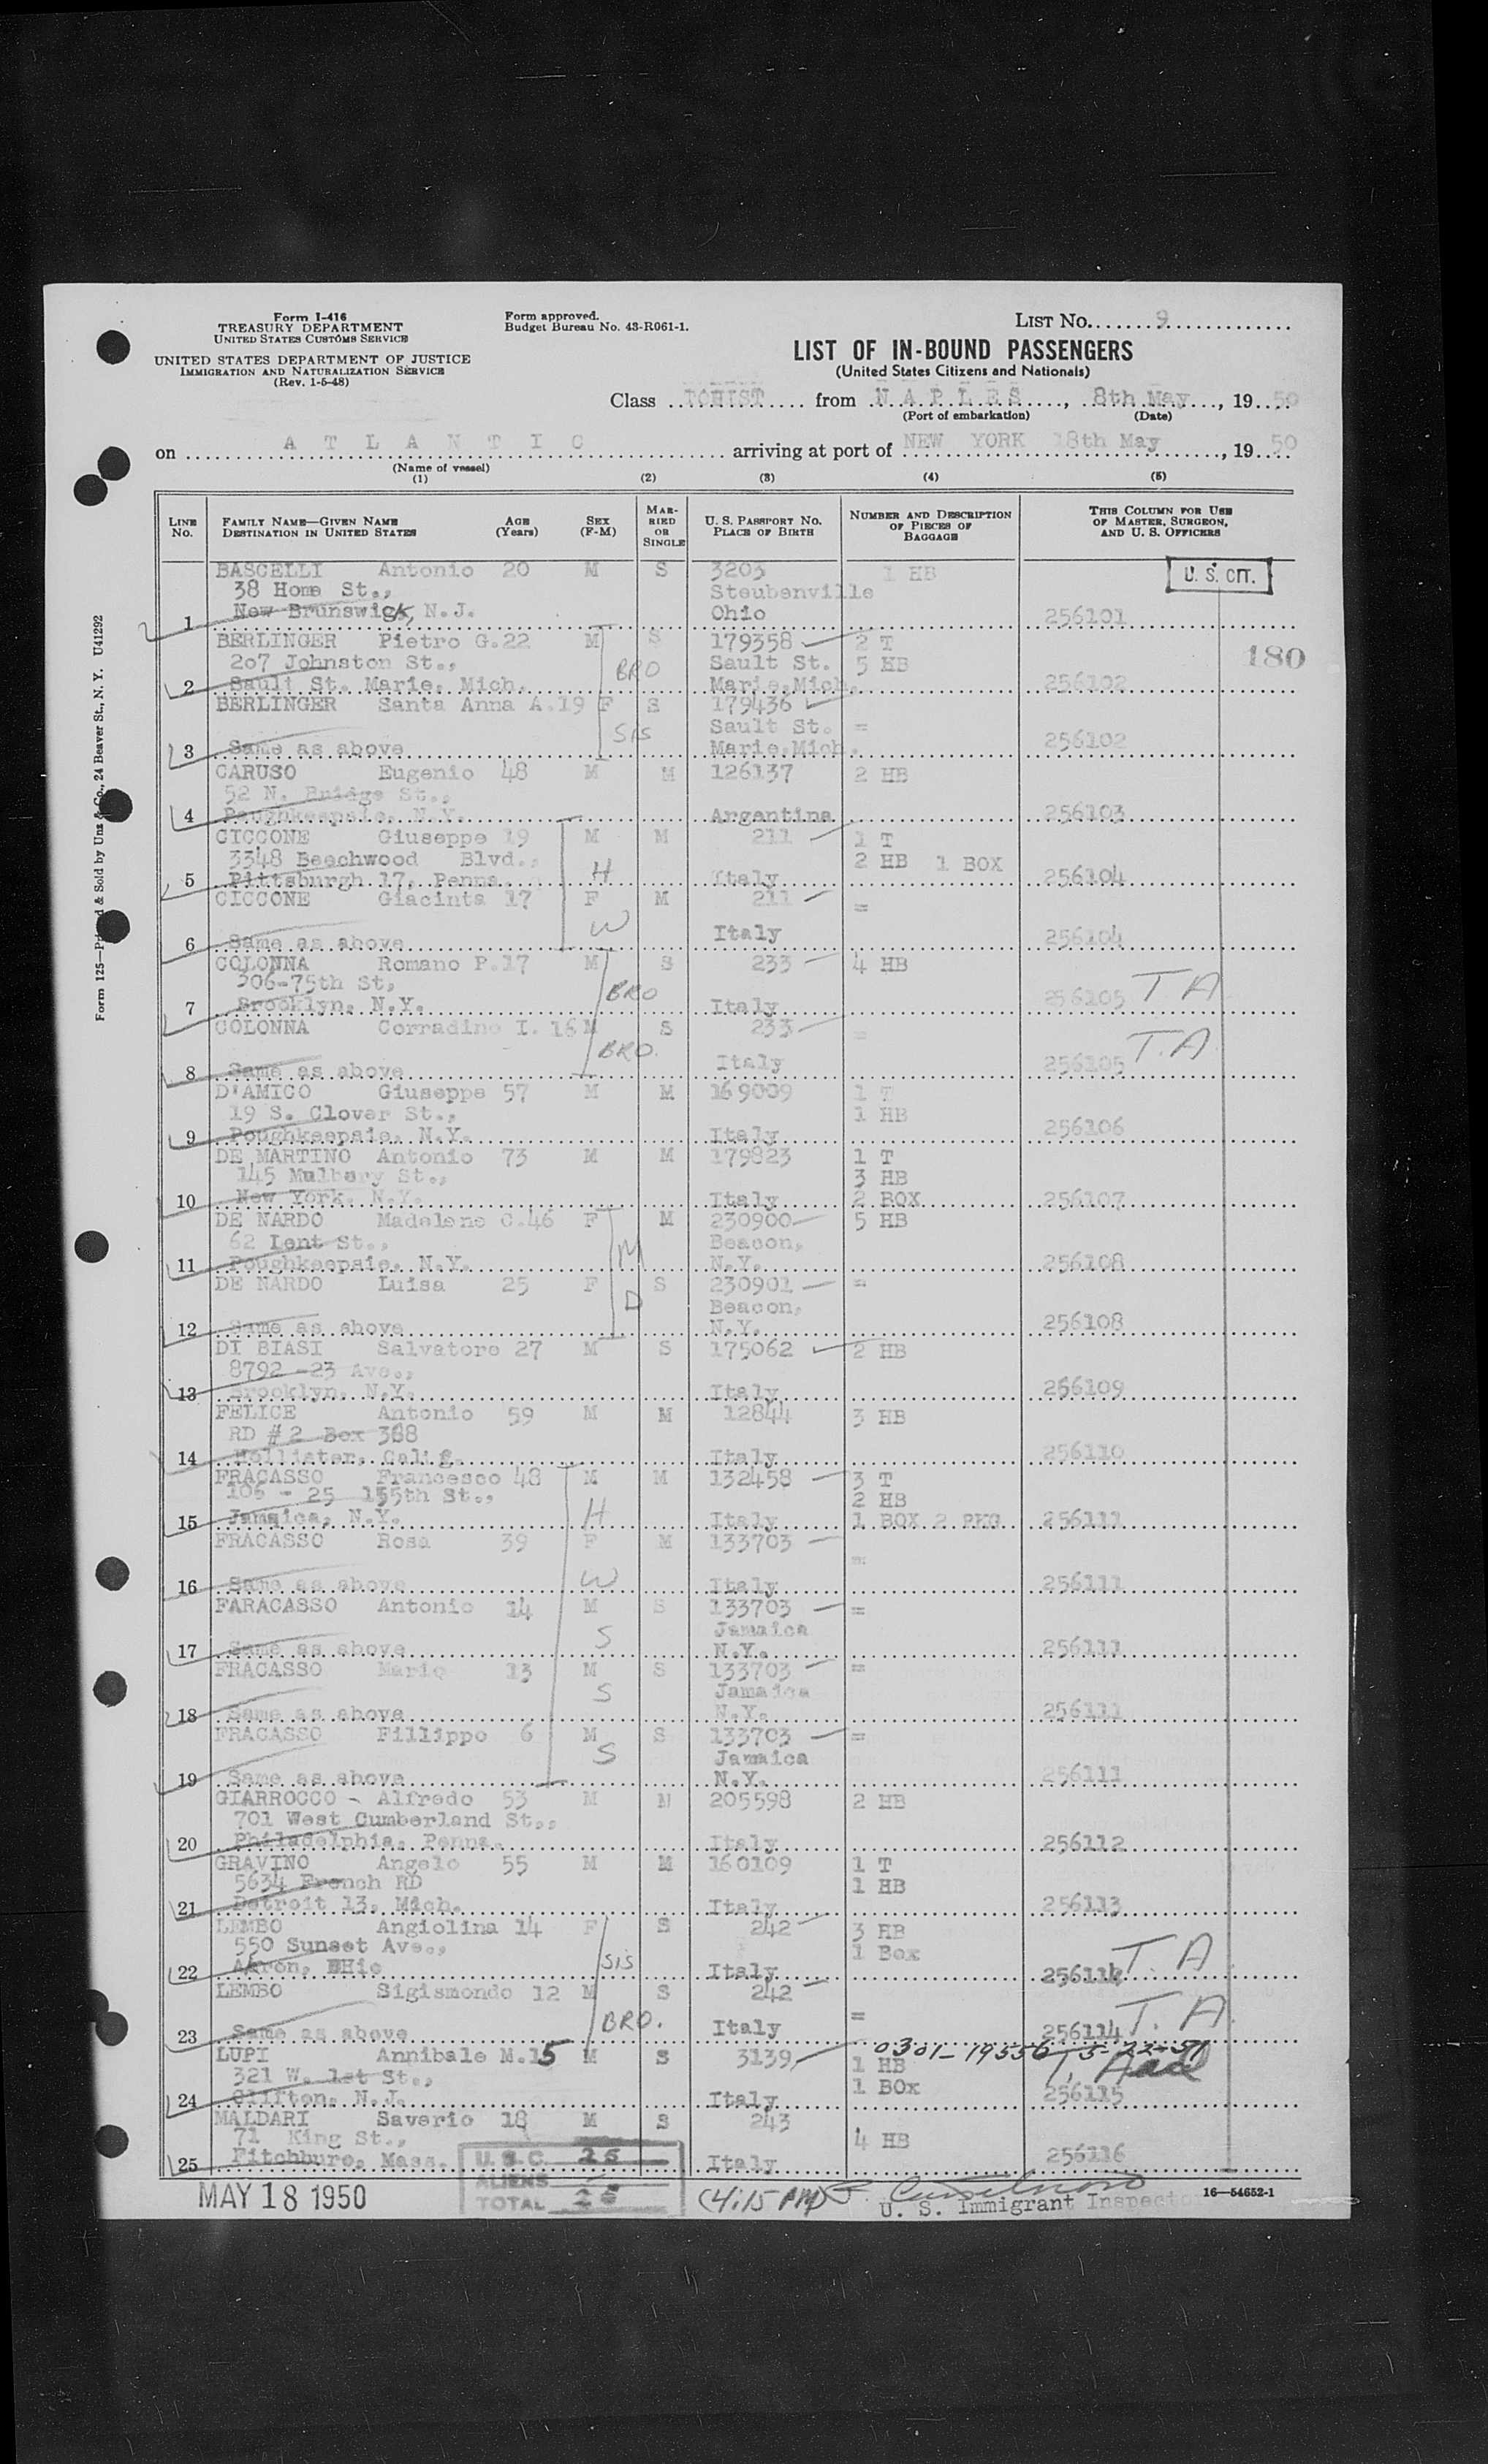 Form I-416
TREASURY DEPARTMENT
UNITED STATES CUSTOMS SERVICE
UNITED STATES DEPARTMENT OF JUSTICE
IMMIGRATION AND NATURALIZATION SERVICE
(Rev. 1-5-48)
Form approved.
Budget Bureau No. 43-R061-1.
LIST NO. 9
LIST OF IN-BOUND PASSENGERS
(United States Citizens and Nationals)
Class TORIST from NAPLES, 8th May, 1950
(Port of embarkation) (Date)
on ATLANTIC arriving at port of NEW YORK 18th May, 1950
(Name of vessel)
(1) (2) (3) (4) (5)
LINE NO.
FAMILY NAME—GIVEN NAME DESTINATION IN UNITED STATES
AGE (Years)
SEX (F-M)
MARRIED OR SINGLE
U. S. PASSPORT NO. PLACE OF BIRTH
NUMBER AND DESCRIPTION OF PIECES OF BAGGAGE
THIS COLUMN FOR USE OF MASTER, SURGEON, AND U. S. OFFICERS
U. S. CIT.
180
BASCELLI Antonio 20 M S 3203 1 HB
38 Home St., Steubenville
1 New Brunswick, N.J. Ohio 256101
BERLINGER Pietro G. 22 M S 179358 2 T
207 Johnston St., BRO Sault St. 5 HB
2 Sault St. Marie, Mich. Marie, Mich. 256102
BERLINGER Santa Anna A. 19 F S 179436
SIS Sault St. =
3 Same as above Marie, Mich. 256102
CARUSO Eugenio 48 M M 126137 2 HB
52 N. Bridge St.,
4 Poughkeepsie, N.Y. Argentina 256103
CICCONE Giuseppe 19 M M 211 1 T
3348 Beechwood Blvd., 2 HB 1 BOX
5 Pittsburgh 17, Penna. H Italy 256104
CICCONE Giacinta 17 F M 211 =
6 Same as above W Italy 256104
COLONNA Romano P. 17 M S 233 4 HB
306-75th St, BRO
7 Brooklyn, N.Y. Italy 256105 T A
COLONNA Corradino I. 16 M S 233 =
8 Same as above BRO. Italy 256105 T.A.
D'AMICO Giuseppe 57 M M 169009 1 T
19 S. Clover St., 1 HB
9 Poughkeepsie, N.Y. Italy 256106
DE MARTINO Antonio 73 M M 179823 1 T
145 Mulbery St., 3 HB
10 New York, N.Y. Italy 2 BOX 256107
DE NARDO Madalene C. 46 F M 230900 5 HB
62 Lent St., M Beacon,
11 Poughkeepsie, N.Y. N.Y. 256108
DE NARDO Luisa 25 F S 230901 =
D Beacon,
12 Same as above N.Y. 256108
DI BIASI Salvatore 27 M S 175062 2 HB
8792 -23 Ave.,
13 Brooklyn, N.Y. Italy 256109
FELICE Antonio 59 M M 12844 3 HB
RD # 2 Box 368
14 Hollister, Calif. Italy 256110
FRACASSO Francesco 48 M M 132458 3 T
106 - 25 155th St., 2 HB
15 Jamaica, N.Y. H Italy 1 BOX 2 PKG 256111
FRACASSO Rosa 39 F M 133703 =
16 Same as above W Italy 256111
FARACASSO Antonio 14 M S 133703 =
S Jamaica
17 Same as above N.Y. 256111
FRACASSO Mario 13 M S 133703 =
S Jamaica
18 Same as above N.Y. 256111
FRACASSO Fillippo 6 M S 133703 =
S Jamaica
19 Same as above N.Y. 256111
GIARROCCO - Alfredo 53 M M 205598 2 HB
701 West Cumberland St.,
20 Philadelphia, Penna. Italy 256112
GRAVINO Angelo 55 M M 160109 1 T
5634 French RD 1 HB
21 Detroit 13, Mich. Italy 256113
LEMBO Angiolina 14 F S 242 3 HB
550 Sunset Ave., SIS 1 Box
22 Akron, OHio Italy 256114 T. A
LEMBO Sigismondo 12 M S 242 =
23 Same as above BRO. Italy 256114 T. A.
0301-19556
LUPI Annibale M. 15 M S 3139 1 HB
321 W. 1st St., 1 BOx
24 Clifton, N.J. Italy 256115
MALDARI Saverio 18 M S 243
71 King St., 4 HB
25 Fitchburo, Mass. Italy 256116
U. S. C. 25
ALIENS
TOTAL 25
MAY 18 1950
(4:15 PM)
U. S. Immigrant Inspector
16—54652-1
Form 125—Printed & Sold by Unz & Co., 24 Beaver St., N. Y. U41292